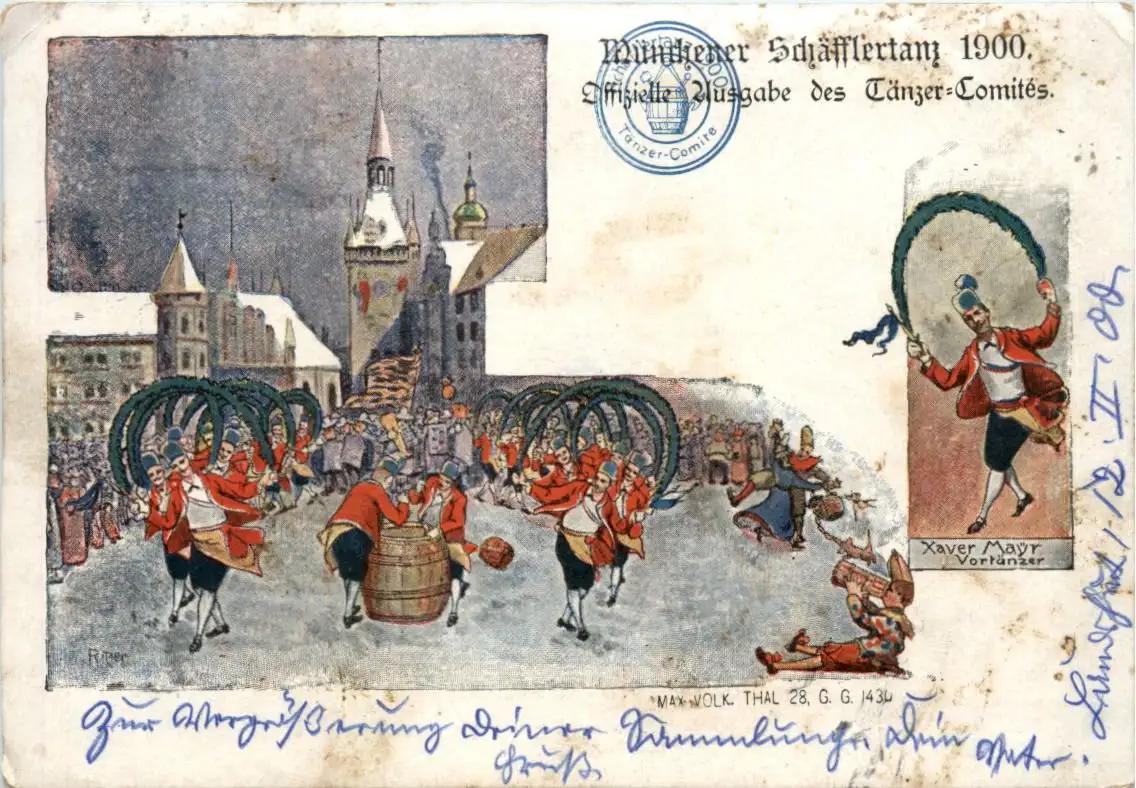 Münchener Schäfflertanz 1900.
Offizielle Ausgabe des Tänzer-Comités.
Schäfflertanz 1900
Tänzer-Comite
Xaver Mayr
Vortänzer
Ritzer
MAX VOLK. THAL 28, G. G. 1430
Zur Vergrößerung Deiner Sammlung. Dein Vater.
Gruß.
Landshut, 12 II 00